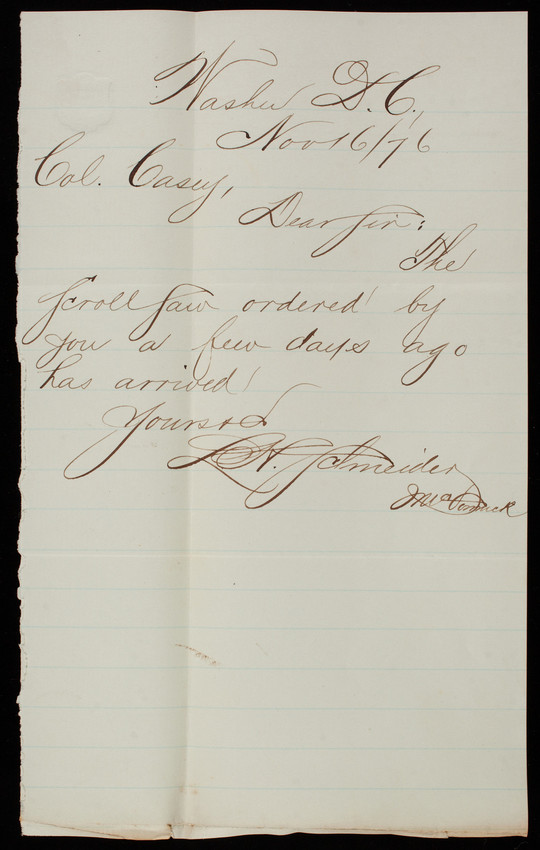 Washn D.C.,
Nov 16/76
Col. Casey,
Dear Sir:
The
Scroll Saw ordered by
you a few days ago
has arrived
Yours &c
L. H. Schneider